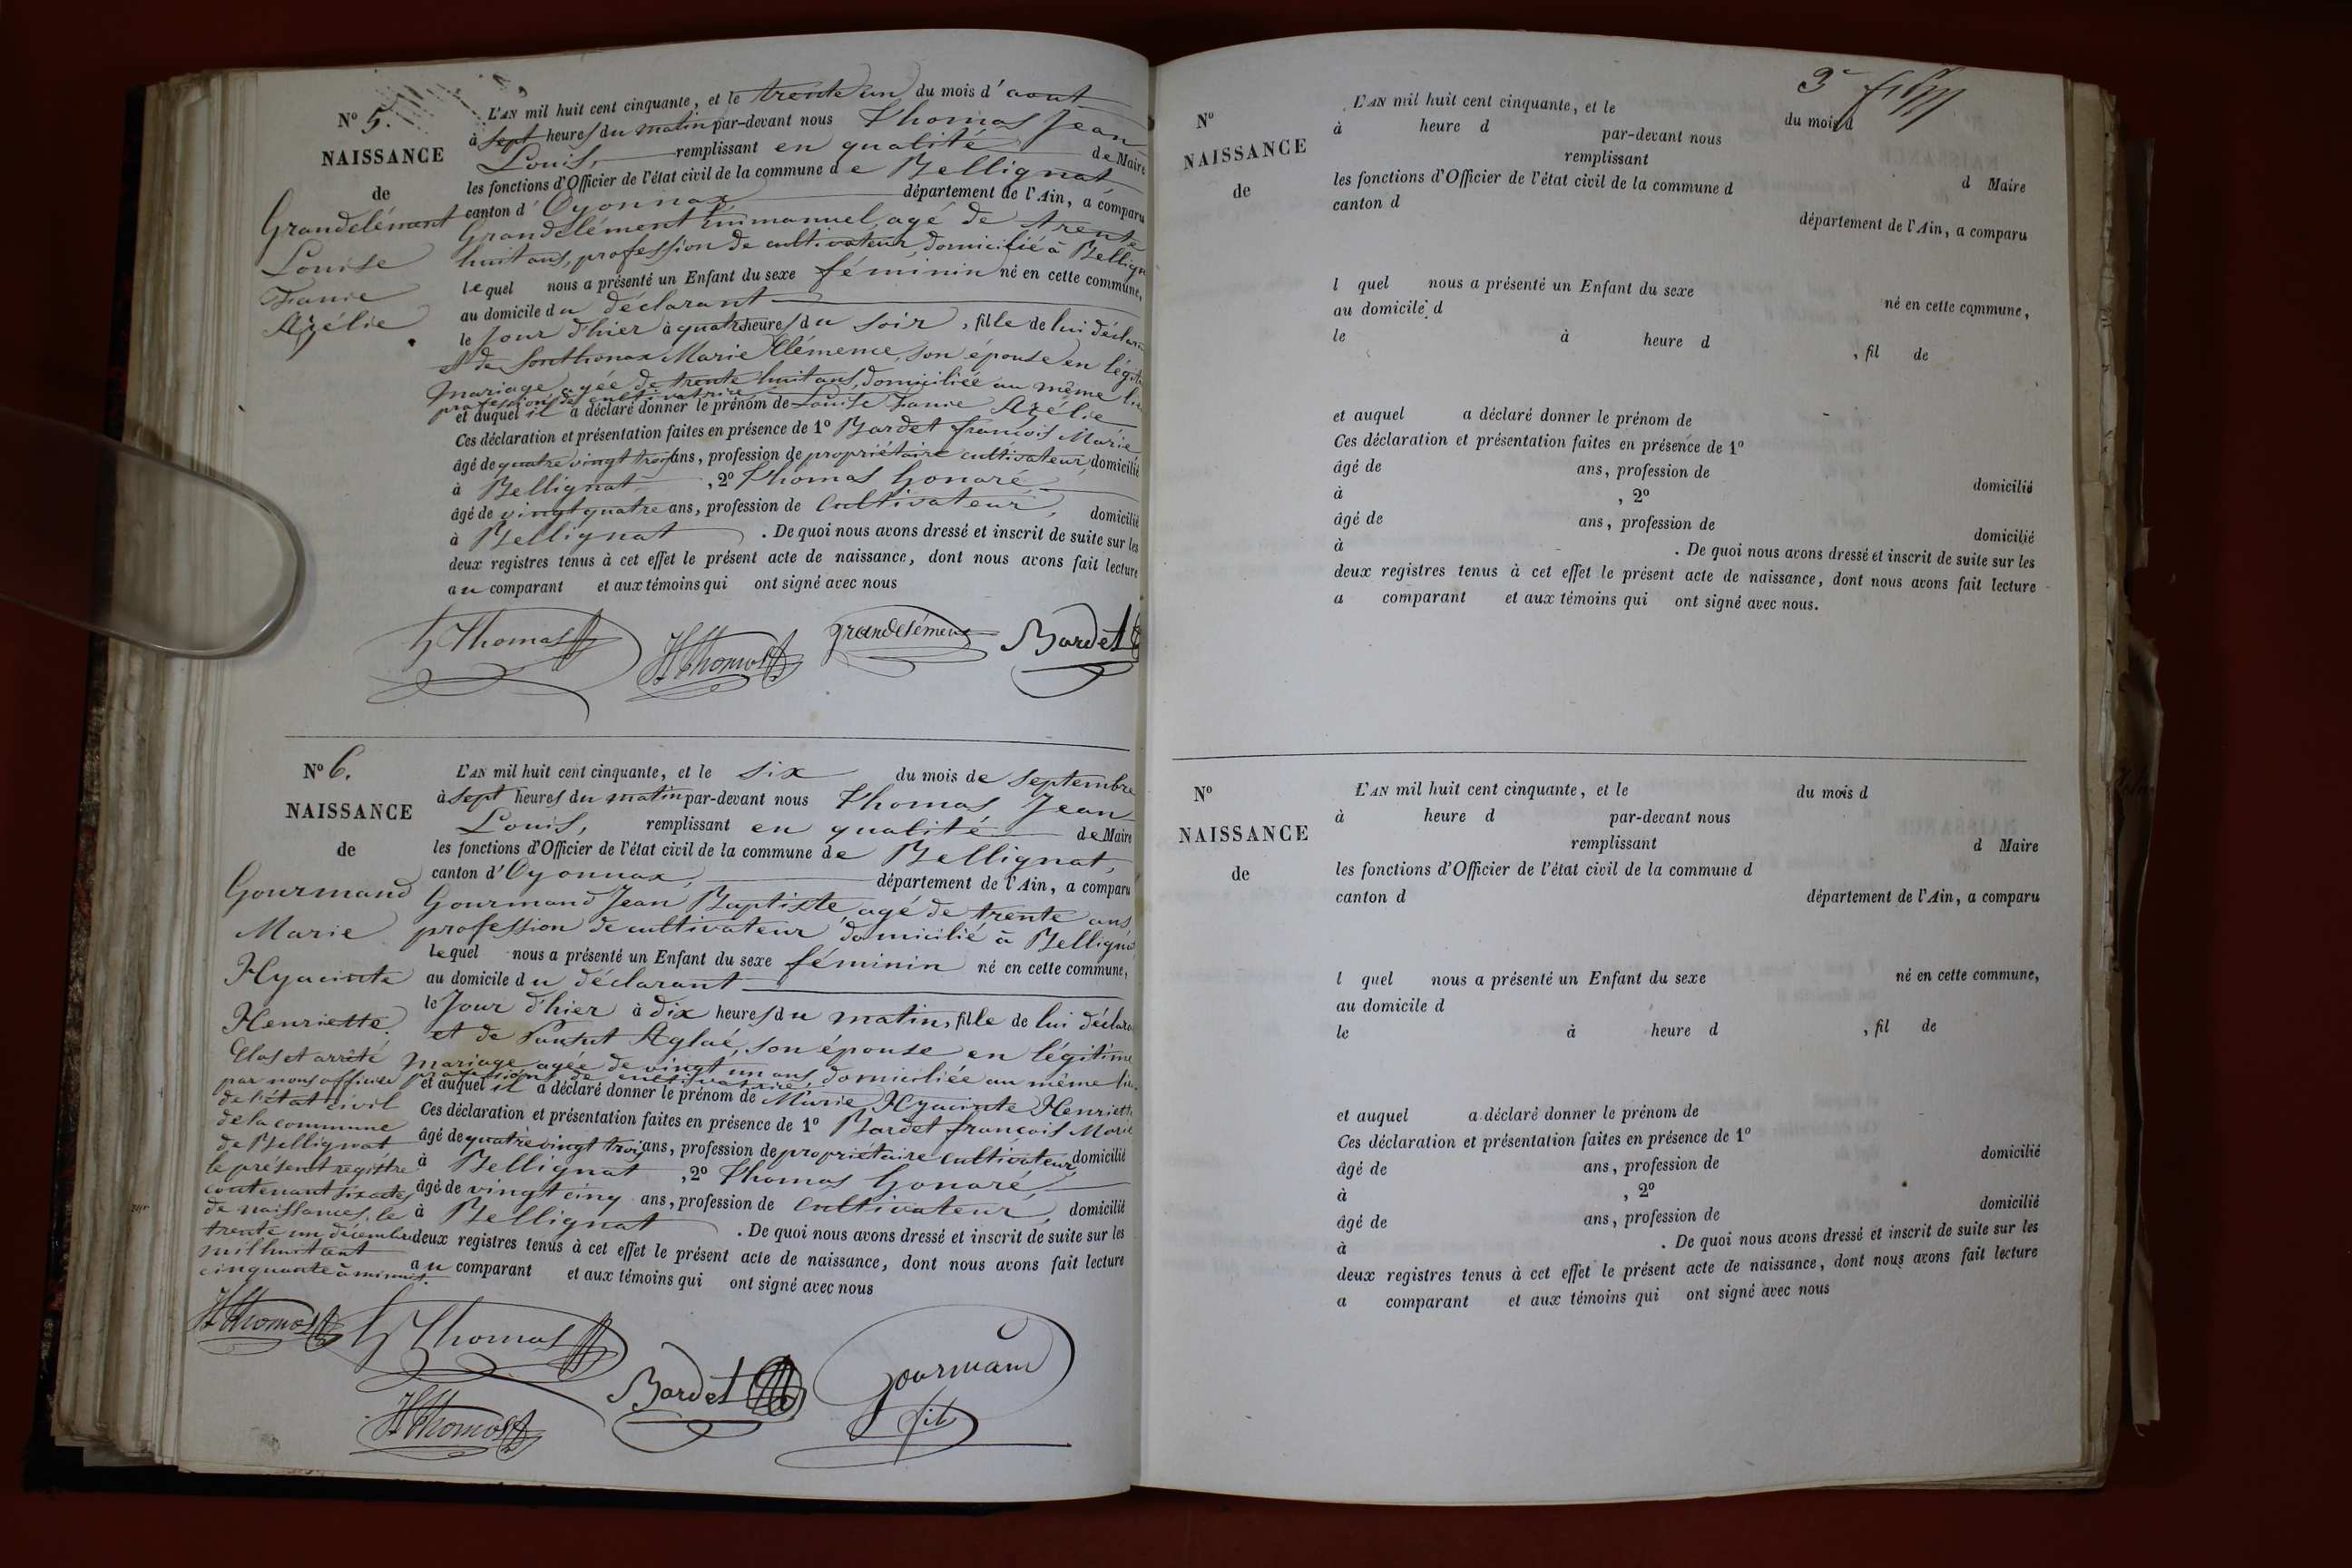 N° 5.
NAISSANCE
de
Grandclément
Louise
Fanie
Azélie
L'AN mil huit cent cinquante, et le trente un du mois d'aout
à sept heures du matin par-devant nous Thomas Jean
Louis, remplissant en qualité de Maire
les fonctions d'Officier de l'état civil de la commune de Bellignat
canton d'Oyonnax département de l'Ain, a comparu
Grandclément Emmanuel, agé de trente
huit ans, profession de cultivateur, domicilié à Bellign
lequel nous a présenté un Enfant du sexe féminin né en cette commune,
au domicile du déclarant
le Jour d'hier à quatre heures du soir, fille de lui déclara
et de Sonthonax Marie Clémence, son épouse en légit
mariage agée de trente huit ans, domiciliée au même lieu
profession de cultivatrice
et auquel il a déclaré donner le prénom de Louise Fanie Azélie
Ces déclaration et présentation faites en présence de 1° Bardet françois Marie
âgé de quatre vingt trois ans, profession de propriétaire cultivateur, domicilié
à Bellignat, 2° Thomas honoré,
âgé de vingt quatre ans, profession de cultivateur, domicilié
à Bellignat. De quoi nous avons dressé et inscrit de suite sur les
deux registres tenus à cet effet le présent acte de naissance, dont nous avons fait lecture
au comparant et aux témoins qui ont signé avec nous
h Thomas Thomas Grandclément Bardet
N° 6.
NAISSANCE
de
Gourmand
Marie
Hyacinte
Henriette.
Clos et arrêté
par nous officier
de l'état civil
de la commune
de Bellignat
le présent registre
contenant six actes
de naissances, le
trente un décembre
mil huit cent
cinquante à minuit.
L'AN mil huit cent cinquante, et le six du mois de septembre
à sept heures du matin par-devant nous Thomas Jean
Louis, remplissant en qualité de Maire
les fonctions d'Officier de l'état civil de la commune de Bellignat,
canton d'Oyonnax, département de l'Ain, a comparu
Gourmand Jean Baptiste, agé de trente ans
profession de cultivateur, domicilié à Bellignat
lequel nous a présenté un Enfant du sexe féminin né en cette commune,
au domicile du déclarant
le Jour d'hier à dix heures du matin, fille de lui déclara
et de Aglaé, son épouse en légitime
mariage agée de vingt un ans, domiciliée au même lieu
profession de cultivatrice,
et auquel il a déclaré donner le prénom de Marie Hyacinte Henriette
Ces déclaration et présentation faites en présence de 1° Bardet françois Marie
âgé de quatre vingt trois ans, profession de propriétaire cultivateur, domicilié
à Bellignat, 2° Thomas honoré,
âgé de vingt cinq ans, profession de cultivateur, domicilié
à Bellignat. De quoi nous avons dressé et inscrit de suite sur les
deux registres tenus à cet effet le présent acte de naissance, dont nous avons fait lecture
au comparant et aux témoins qui ont signé avec nous
Thomas h Thomas
Bardet Gourmand
fils
Thomas
3e
N°
NAISSANCE
de
L'AN mil huit cent cinquante, et le du mois d
à heure d par-devant nous
remplissant d Maire
les fonctions d'Officier de l'état civil de la commune d
canton d département de l'Ain, a comparu
l quel nous a présenté un Enfant du sexe né en cette commune,
au domicile d
le à heure d , fil de
et auquel a déclaré donner le prénom de
Ces déclaration et présentation faites en présence de 1°
âgé de ans, profession de domicilié
à , 2°
âgé de ans, profession de domicilié
à . De quoi nous avons dressé et inscrit de suite sur les
deux registres tenus à cet effet le présent acte de naissance, dont nous avons fait lecture
a comparant et aux témoins qui ont signé avec nous.
N°
NAISSANCE
de
L'AN mil huit cent cinquante, et le du mois d
à heure d par-devant nous
remplissant d Maire
les fonctions d'Officier de l'état civil de la commune d
canton d département de l'Ain, a comparu
l quel nous a présenté un Enfant du sexe né en cette commune,
au domicile d
le à heure d , fil de
et auquel a déclaré donner le prénom de
Ces déclaration et présentation faites en présence de 1°
âgé de ans, profession de domicilié
à , 2°
âgé de ans, profession de domicilié
à . De quoi nous avons dressé et inscrit de suite sur les
deux registres tenus à cet effet le présent acte de naissance, dont nous avons fait lecture
a comparant et aux témoins qui ont signé avec nous